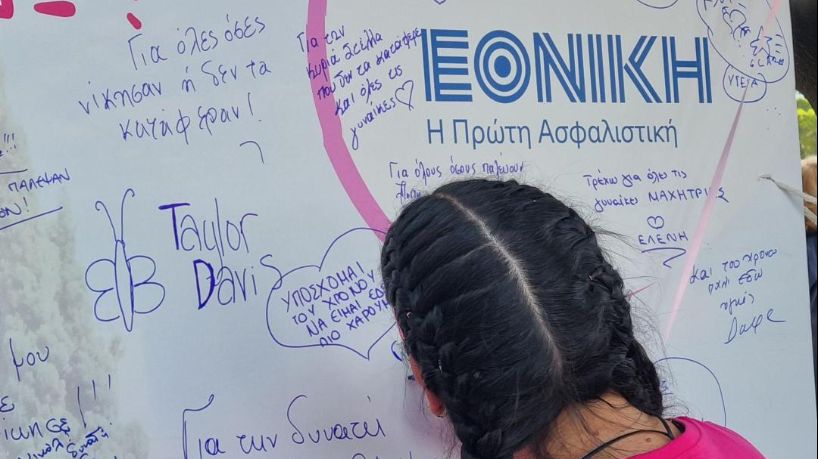 Για όλες όσες
νίκησαν ή δεν τα
κατάφεραν!
Για την
κυρία Στέλλα
που δεν τα κατάφερε
και όλες τις
γυναίκες
ΕΘΝΙΚΗ
Η Πρώτη Ασφαλιστική
ΥΓΕΙΑ
ΠΑΛΕΨΑΝ
Για όλους όσους παλεύουν
Τρέχω για όλες τις
γυναίκες ΜΑΧΗΤΡΙΕΣ
ΕΛΕΝΗ
Taylor
Davis
ΥΠΟΣΧΟΜΑΙ
ΤΟΥ ΧΡΟΝΟΥ
ΝΑ ΕΙΜΑΙ
ΠΙΟ
και του χρόνου
εδώ
υγιείς
μου
Για την δυνατή